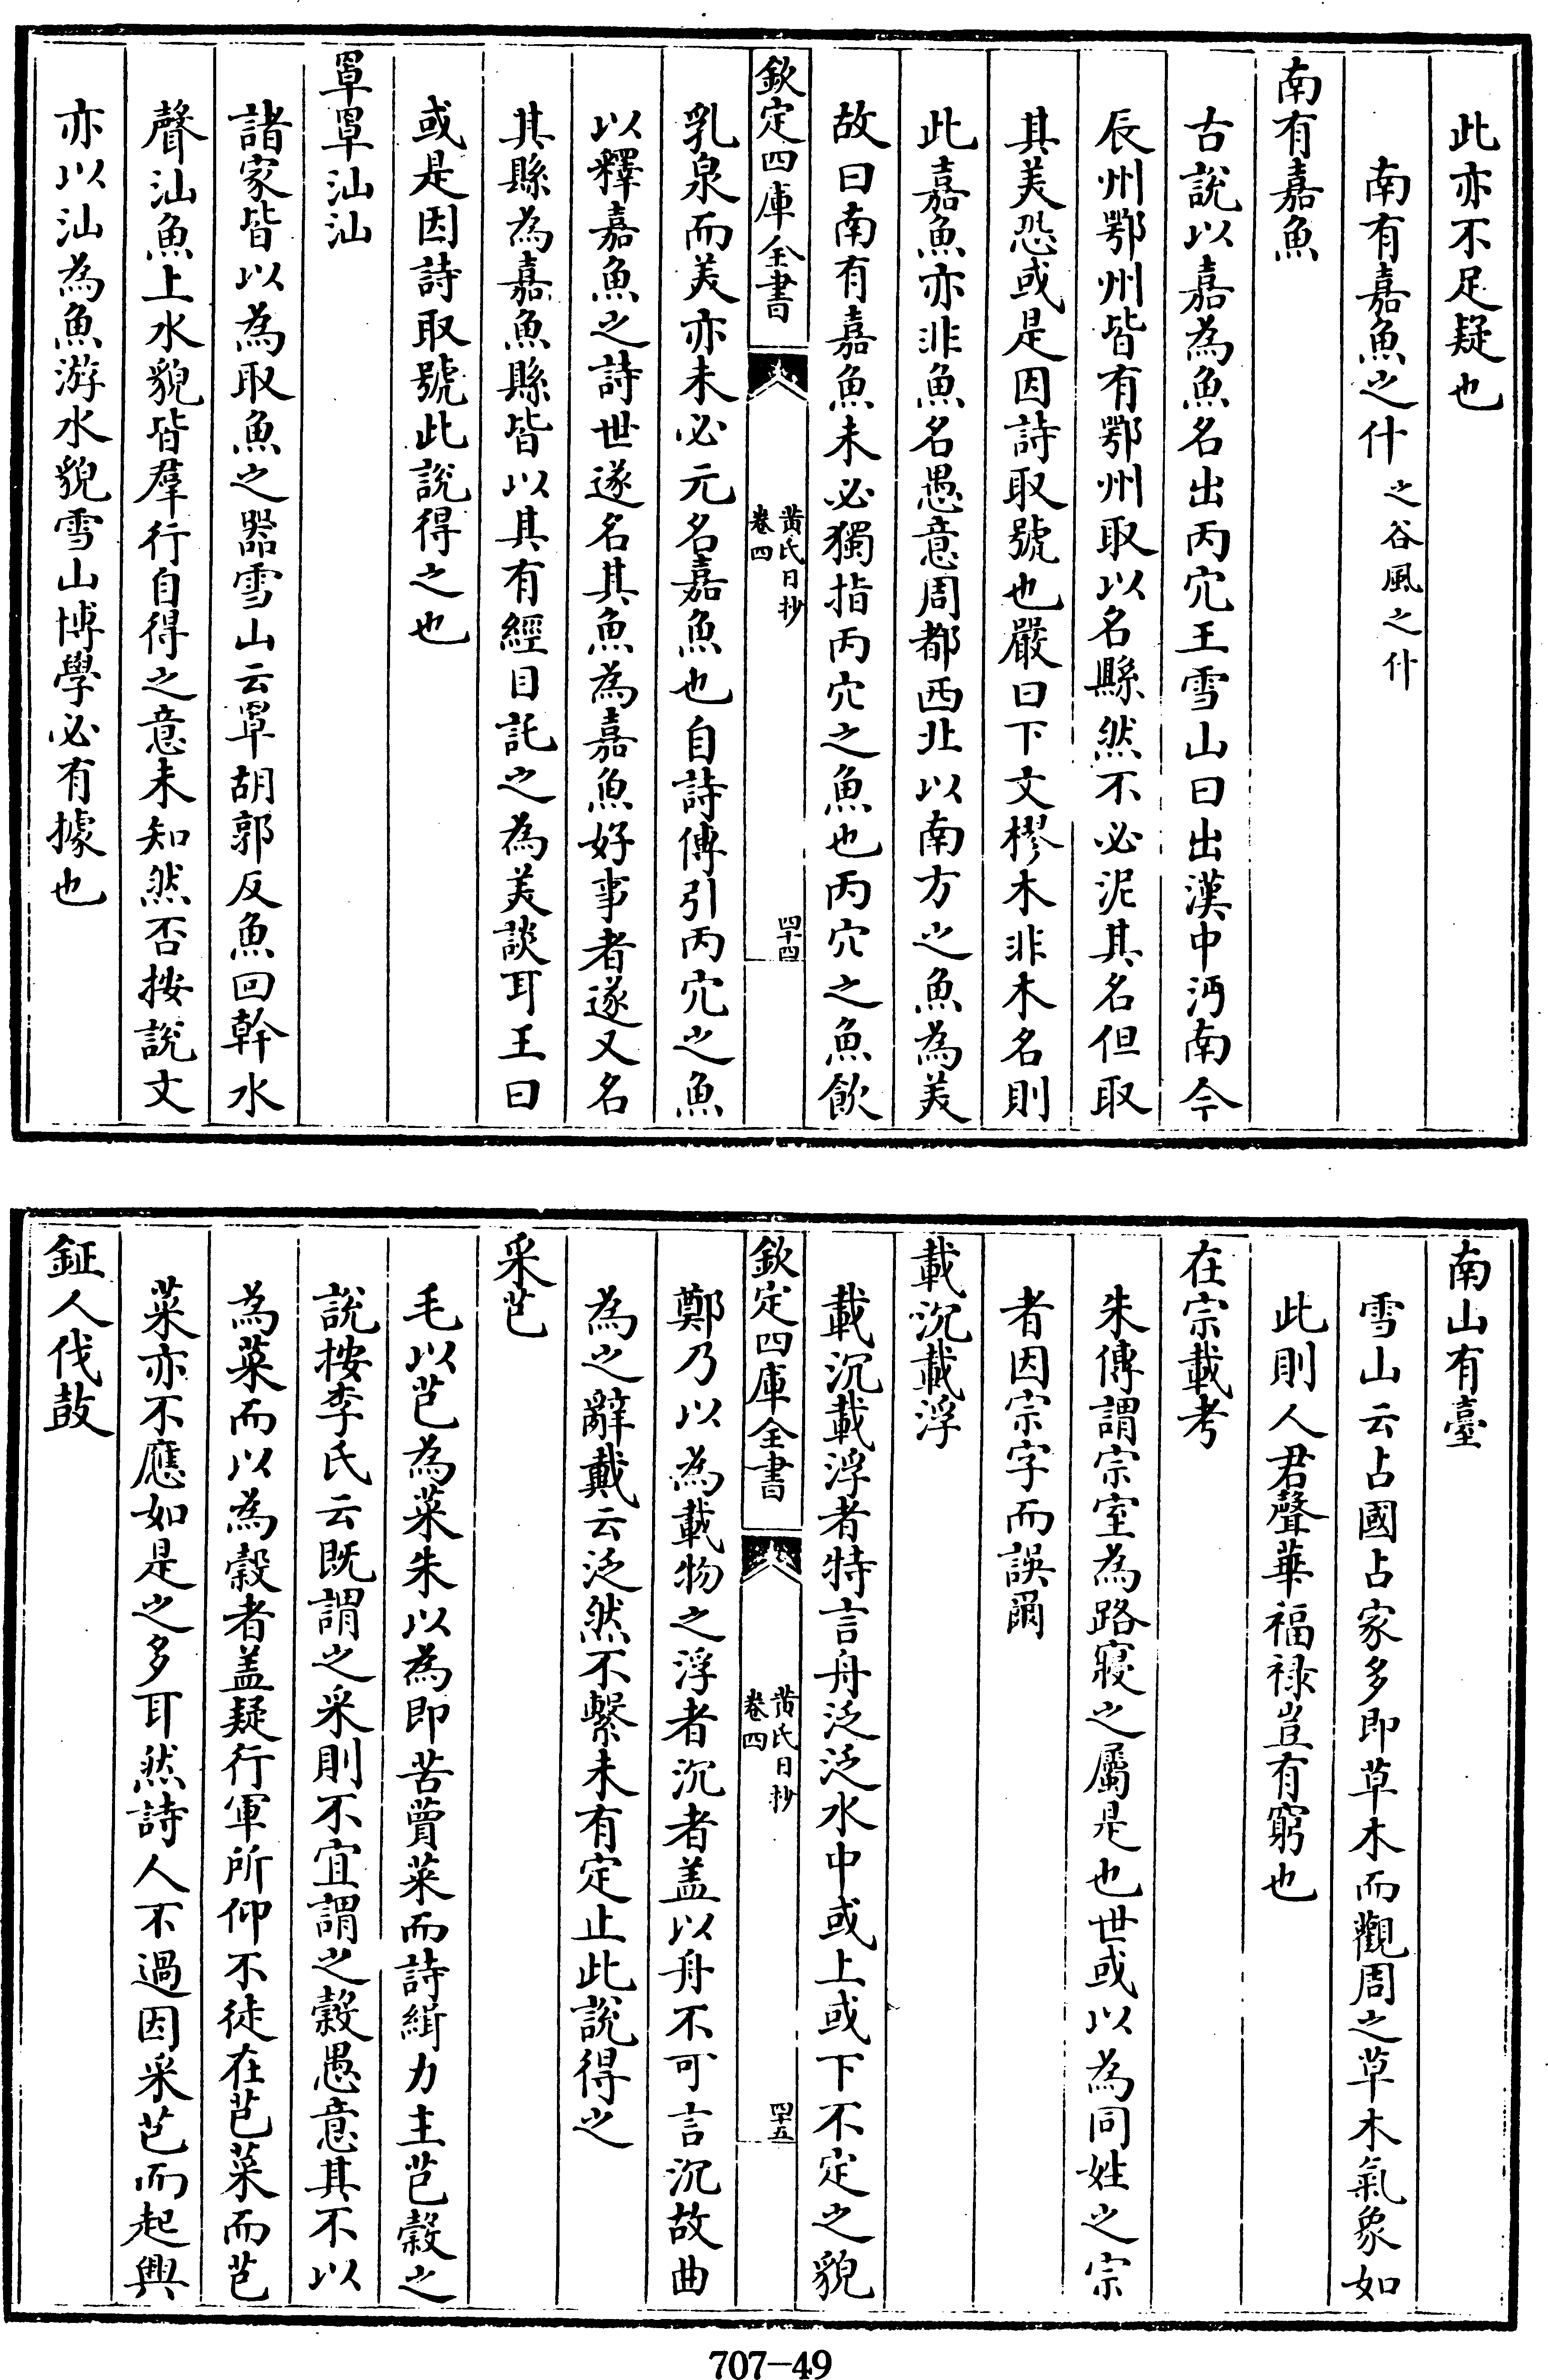 此亦不足疑也
南有嘉魚之什 之谷風之什
南有嘉魚
古說以嘉為魚名出丙穴王雪山曰出漢中沔南今
辰州鄂州皆有鄂州取以名縣然不必泥其名但取
其美恐或是因詩取號也嚴曰下文樛木非木名則
此嘉魚亦非魚名愚意周都西北以南方之魚為美
故曰南有嘉魚未必獨指丙穴之魚也丙穴之魚飲
欽定四庫全書 黄氏日抄 卷四 四十四
乳泉而美亦未必元名嘉魚也自詩傳引丙穴之魚
以釋嘉魚之詩世遂名其魚為嘉魚好事者遂又名
其縣為嘉魚縣皆以其有經目託之為美談耳王曰
或是因詩取號此說得之也
罩罩汕汕
諸家皆以為取魚之器雪山云罩胡郭反魚回幹水
聲汕魚上水貌皆羣行自得之意未知然否按說文
亦以汕為魚游水貌雪山博學必有據也
南山有臺
雪山云占國占家多即草木而觀周之草木氣象如
此則人君聲華福祿豈有窮也
在宗載考
朱傳謂宗室為路寢之屬是也世或以為同姓之宗
者因宗字而誤爾
載沉載浮
載沉載浮者特言舟泛泛水中或上或下不定之貌
欽定四庫全書 黄氏日抄 卷四 四十五
鄭乃以為載物之浮者沉者盖以舟不可言沉故曲
為之辭戴云泛然不繫未有定止此說得之
采芑
毛以芑為菜朱以為即苦蕒菜而詩緝力主芑穀之
說按李氏云既謂之采則不宜謂之穀愚意其不以
為菜而以為穀者盖疑行軍所仰不徒在芑菜而芑
菜亦不應如是之多耳然詩人不過因采芑而起興
鉦人伐鼓
707-49